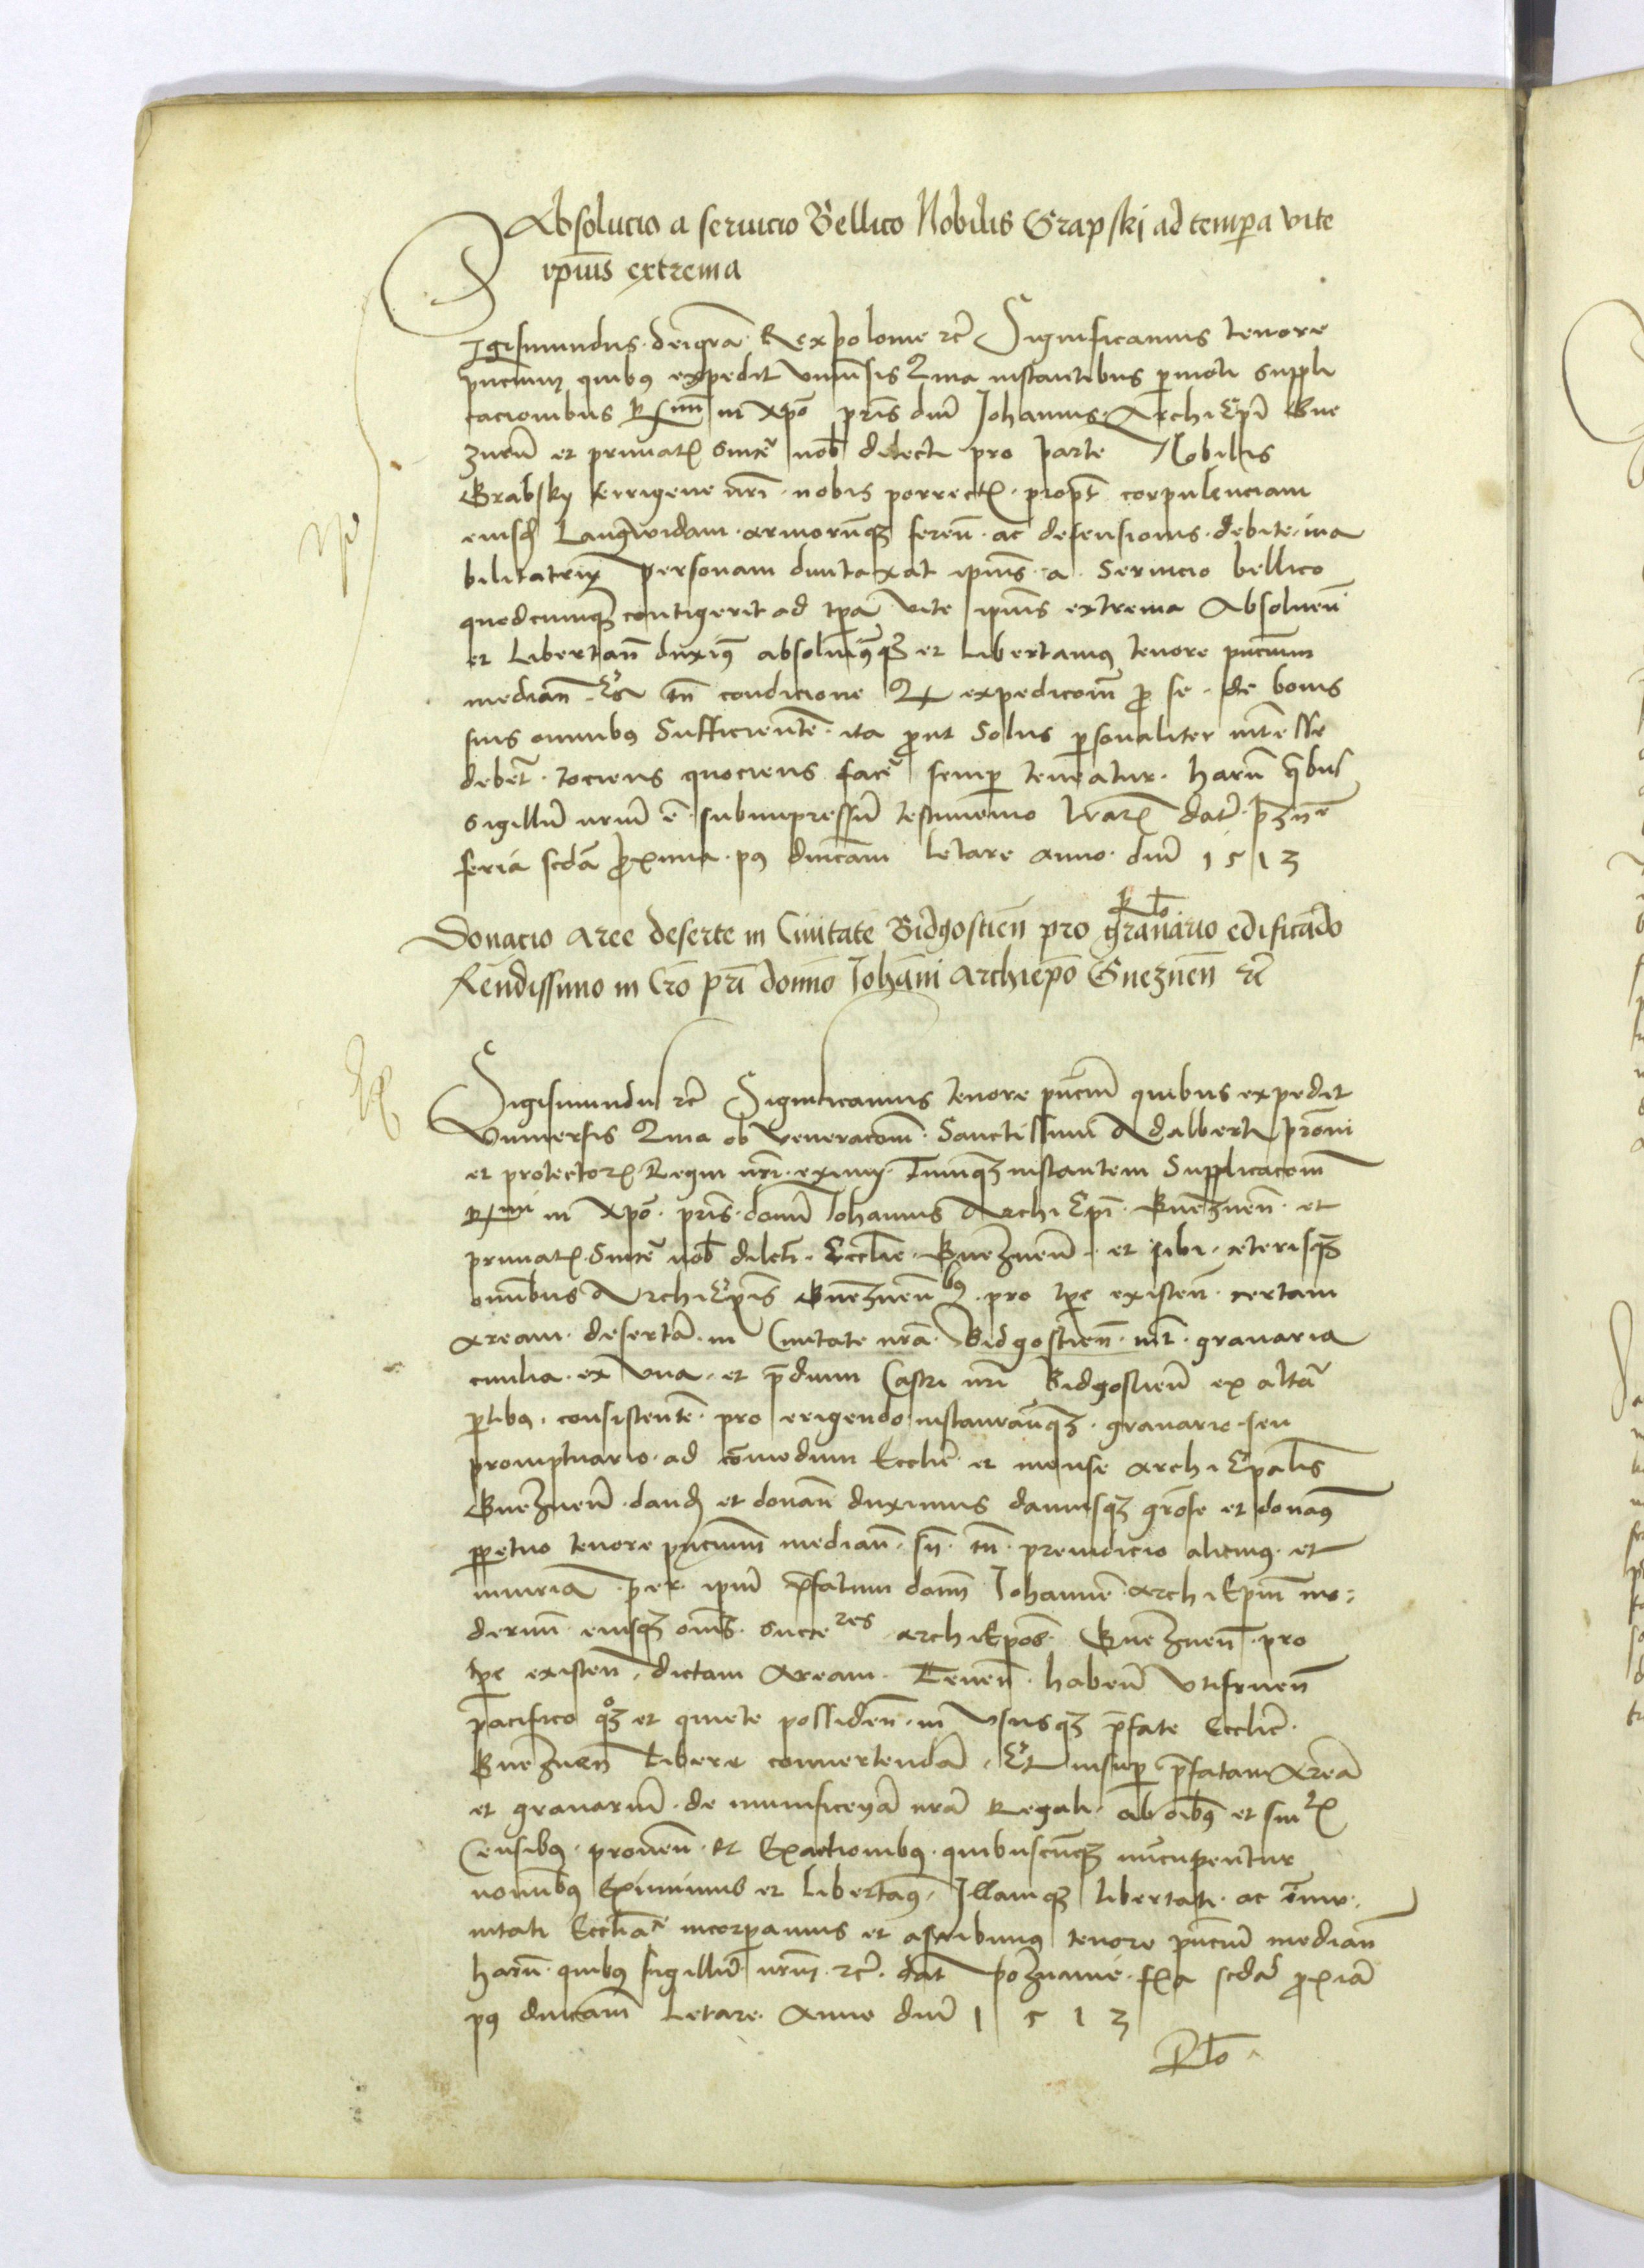 Absolucio a seruicio Bellico Nobilis Grapski ad tempora vite
ipius extrema
Sigismundus dei gra Rex polonie rc Significamus tenore
pncium quibus expedit vniuersis Quia instantibus permoti suppli
cacionibus Rmi in xpo pris dni Johannis Archi Epi Gne
znen et primatis sincere nob dilecti pro parte Nobilis
Grabsky terrigene nri nobis porrectis propter corpulenciam
eiusd Languidam armorumque feren ac defensionis debite ina
bilitatem personam duntaxat ipius a Seruicio bellico
quodcumque contigerit ad tpa vite ipius extrema Absoluen
et Libertan duximus absoluimusque et Libertamus tenore pncium
median Ea tn condicione Quod expedicionem pro se de bonis
suis omnibus Sufficientem ita prout Solus personaliter interesse
debet tociens quociens facere semper teneatur harum quibus
sigillum nrum e subimpressum testimonio lrarum datum pzn
feria scda proxima post dnicam letare anno dni 1513
Rlo
Donacio Aree deserte in Ciuitate Bidgostien pro granario edificando
Reuendissimo in Cro pri domino Johani Archiepo Gneznen rc
Sigismundus rc Significamus tenore pncium quibus expedit
Vniuersis Quia ob veneracionem Sanctissimi Adalberti proni
et protectoris Regni nri eximij Tumque instantem Supplicacionem
Rmi in xpo pris domini Johannis Archi Epi Gneznen et
primatis Sincere nob dilecti Ecclie Gneznen et sibi ceterisque
omnibus Archi Epis Gneznenbus pro tpe existen certam
Aream desertam in Ciuitate nra Bidgostien inter granaria
ciuilia ex vna et predium Castri nri Bidgostien ex altera
partibus consistentem pro erigendo instaurandoque granario seu
promptuario ad comodum Ecclie et mense archi Epalis
Gneznen dand et donan duximus damusque grose et donamus
perpetuo tenore pncium median sn tn preiudicio alicuius et
iniuria Per ipum prefatum domi Johannem archi Epum mo
dernum eiusque omnes succeres archi Epos Gneznen pro
tpe existen dictam Aream Tenen haben vtifruen
pacifico que et quiete possiden in vsusque prefate Ecclie
Gneznen libere conuertendam Et insuper prefatam Aream
et granarium de munificencia nra Regali ab oibus et singulis
Censibus prouen et Exactionibus quibuscunque nuncupentur
nominibus Eximimus et libertamus Illamque libertati ac immu
nitati Ecclia incorporamus et ascribimus tenore pncium median
harum quibus sigillum nrum rc dat Poznanie fria scda proxia
post dnicam Letare Anno dni 1513
Rlo